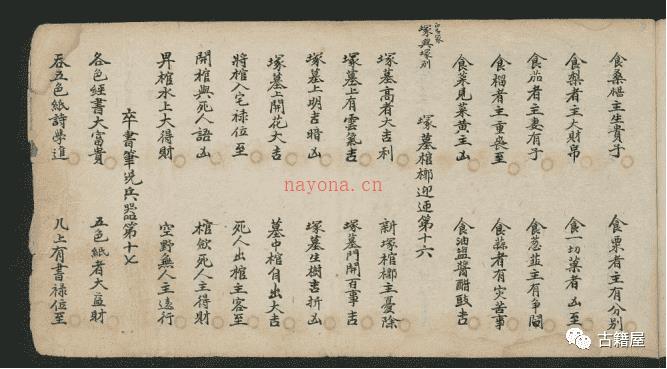 食桑椹主生貴子　食栗者主有分别
食梨者主大財帛　食一切菓者凶至
食茄者主妻有子　食葱韮主有争鬪
食榴者主重喪至　食蒜者有灾苦事
食菜見菜黄主凶　食油塩醬醋豉吉
塚墓棺槨迎送第十六
塚與塚别
塚墓高者大吉利　新塚棺槨主憂除
塚墓上有雲氣吉　塚墓門開百事吉
塚墓上明吉暗凶　塚墓生樹吉折凶
塚墓上開花大吉　墓中棺自出大吉
將棺入宅禄位至　死人出棺主客至
開棺與死人語凶　棺斂死人主得財
昇棺水上大得財　空野無人主遠行
卒書筆硯兵器第十七
各色經書大富貴　五色紙者大益財
吞五色紙詩學進　几上有書禄位至
nayona.cn
古籍屋